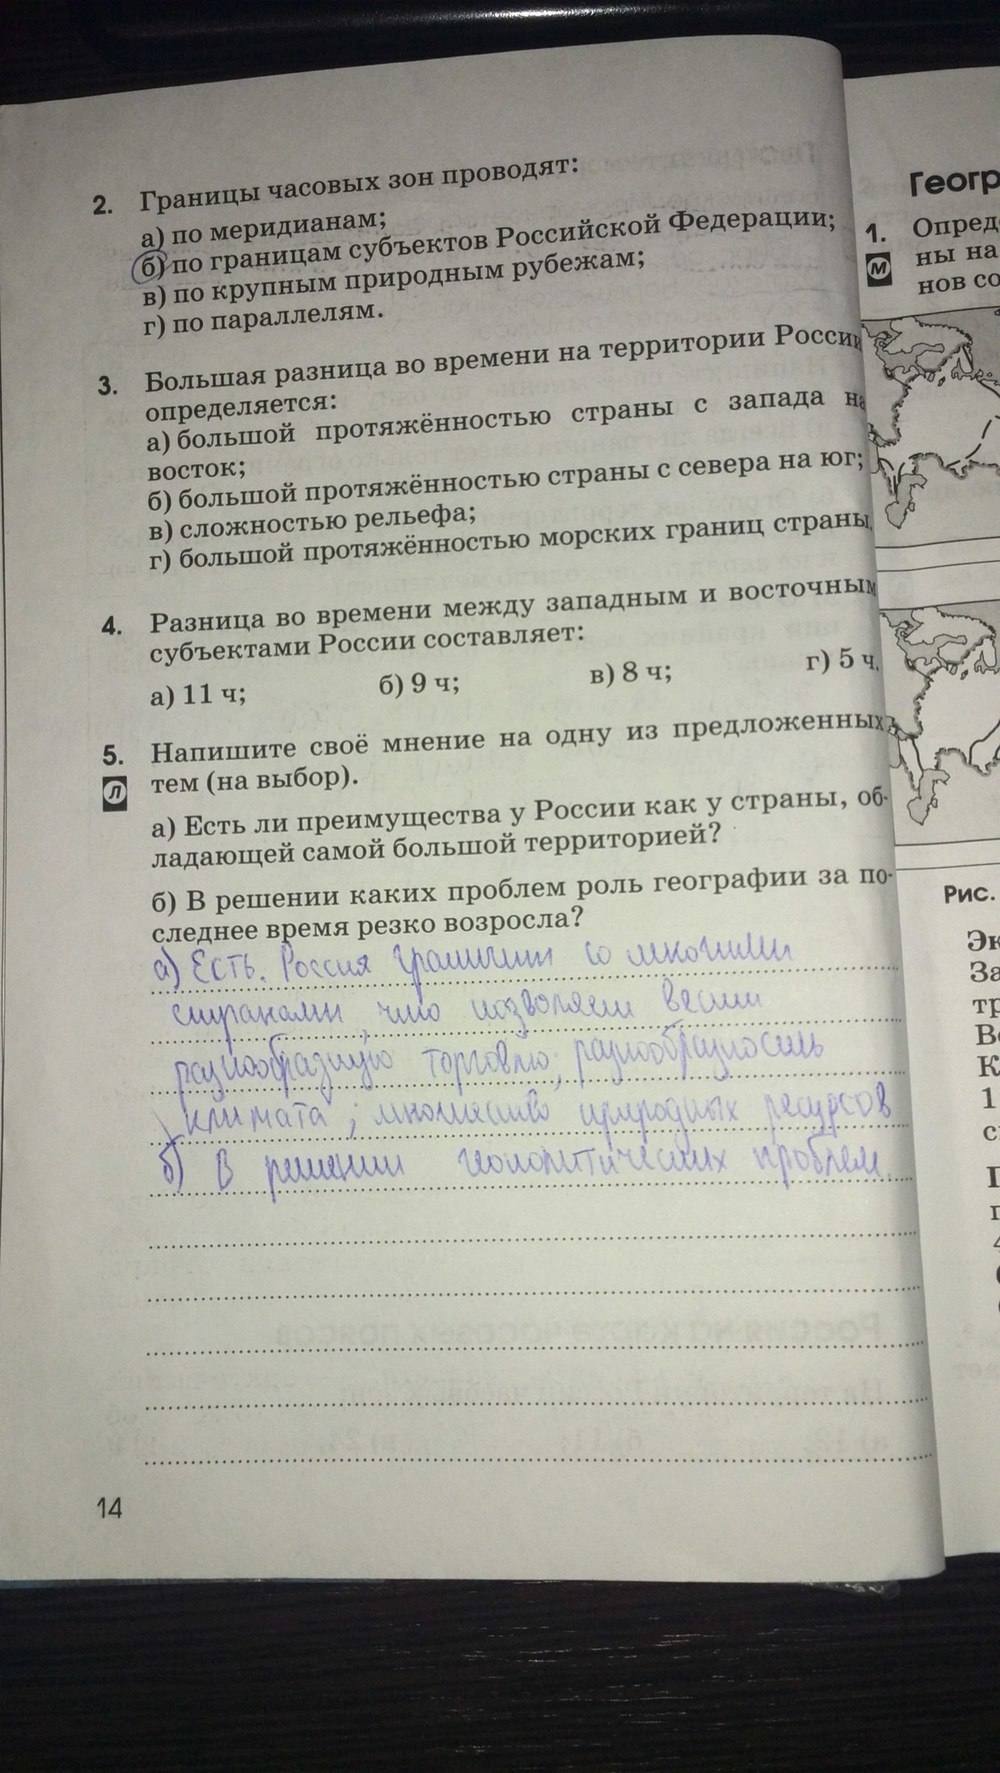 2. Границы часовых зон проводят:
а) по меридианам;
б) по границам субъектов Российской Федерации;
в) по крупным природным рубежам;
г) по параллелям.
3. Большая разница во времени на территории России
определяется:
а) большой протяжённостью страны с запада на
восток;
б) большой протяжённостью страны с севера на юг;
в) сложностью рельефа;
г) большой протяжённостью морских границ страны.
4. Разница во времени между западным и восточным
субъектами России составляет:
а) 11 ч; б) 9 ч; в) 8 ч; г) 5 ч.
5. Напишите своё мнение на одну из предложенных
Л тем (на выбор).
а) Есть ли преимущества у России как у страны, об-
ладающей самой большой территорией?
б) В решении каких проблем роль географии за по-
следнее время резко возросла?
а) Есть. Россия граничит со многими
странами, что позволяет вести
разнообразную торговлю; разнообразность
климата; множество природных ресурсов
б) В решении геополитических проблем.
14
Геогр
1. Опред
М ны на
нов со
Рис.
Эк
За
тр
Во
К
1